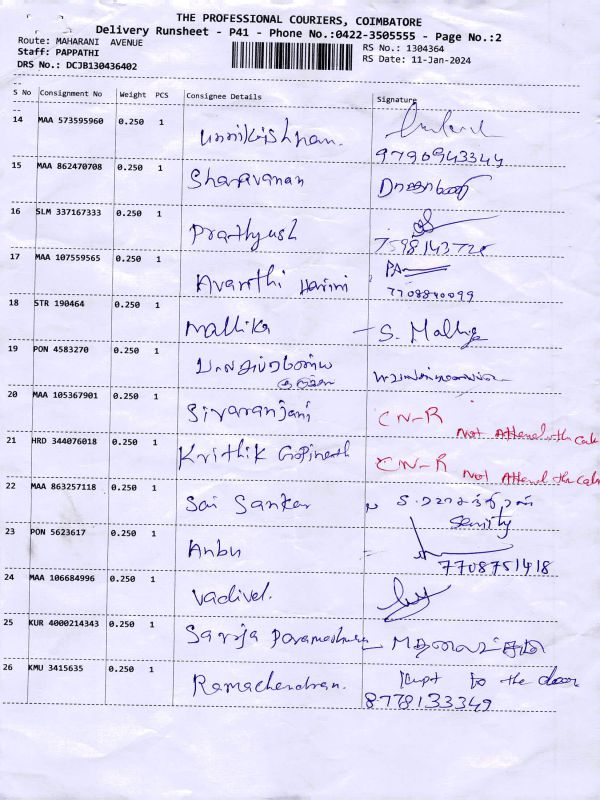 THE PROFESSIONAL COURIERS, COIMBATORE
Delivery Runsheet - P41 - Phone No.:0422-3505555 - Page No.:2
Route: MAHARANI AVENUE
RS No.: 1304364
Staff: PAPPATHI
RS Date: 11-Jan-2024
DRS No.: DCJB130436402
S No Consignment No Weight PCS Consignee Details Signature
14 MAA 573595960 0.250 1 Unnikrishnan.
9790943344
15 MAA 862470708 0.250 1 Sharavanan
16 SLM 337167333 0.250 1 Prathyush
17 MAA 107559565 0.250 1 Avanthi Harini PA
7708840099
18 STR 190464 0.250 1 Mallika - S. Mallig
19 PON 4583270 0.250 1
20 MAA 105367901 0.250 1 Sivaranjani CN-R Not Attend the call
21 HRD 344076018 0.250 1 Krithik Gopinath CN-R Not Attend the call
22 MAA 863257118 0.250 1 Sai Sankar
23 PON 5623617 0.250 1 Anbu
7708751418
24 MAA 106684996 0.250 1 Vadivel.
25 KUR 4000214343 0.250 1 Saroja Parameshwa
26 KMU 3415635 0.250 1 Ramachandran. kept to the door
8778133349